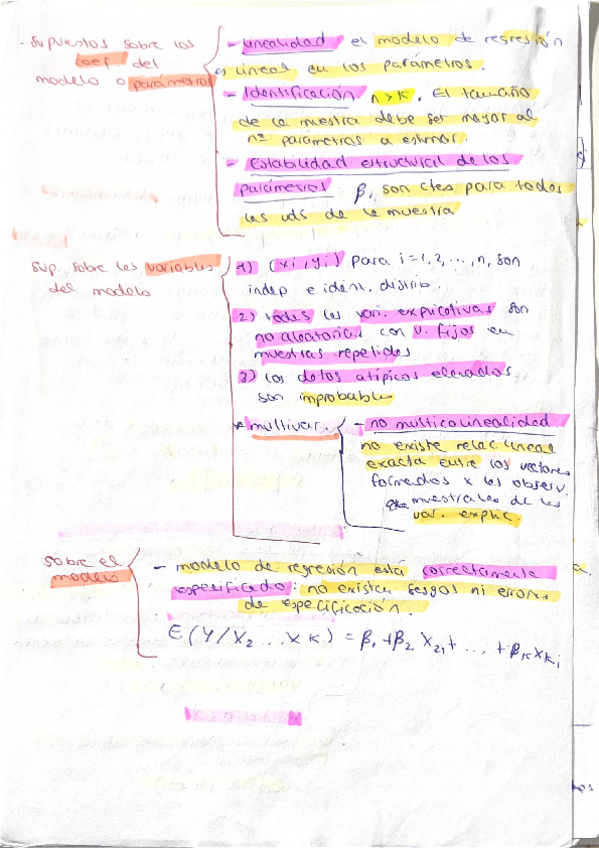 - Supuestos sobre los coef del modelo o parámetros
- Linealidad el modelo de regresión
es lineal en los parámetros.
- Identificación n > K. El tamaño
de la muestra debe ser mayor al
nº parámetros a estimar.
- Estabilidad estructural de los
parámetros: βi son ctes para todos
las uds de la muestra
Sup. sobre las variables
del modelo
1) (xi, yi) para i=1,2,...,n, son
indep e ident. distrib.
2) todas las var. explicativas son
no aleatorias con v. fijos en
muestras repetidas
3) los datos atípicos elevados
son improbables
* multivar.
- no multicolinealidad
no existe relac. lineal
exacta entre los vectores
formados x las observ.
muestrales de las
var. explic.
Sobre el
modelo
- modelo de regresión está correctamente
especificado: no existen sesgos ni errores
de especificación.
E(Y/X2 ... XK) = β1 + β2 X2i + ... + βK XKi